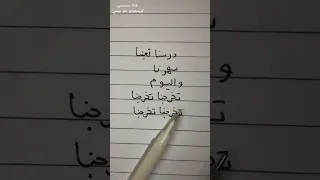 درسنا تعبنا
سهرنا
واليوم
تخرجنا تخرجنا
تخرجنا تخرجنا